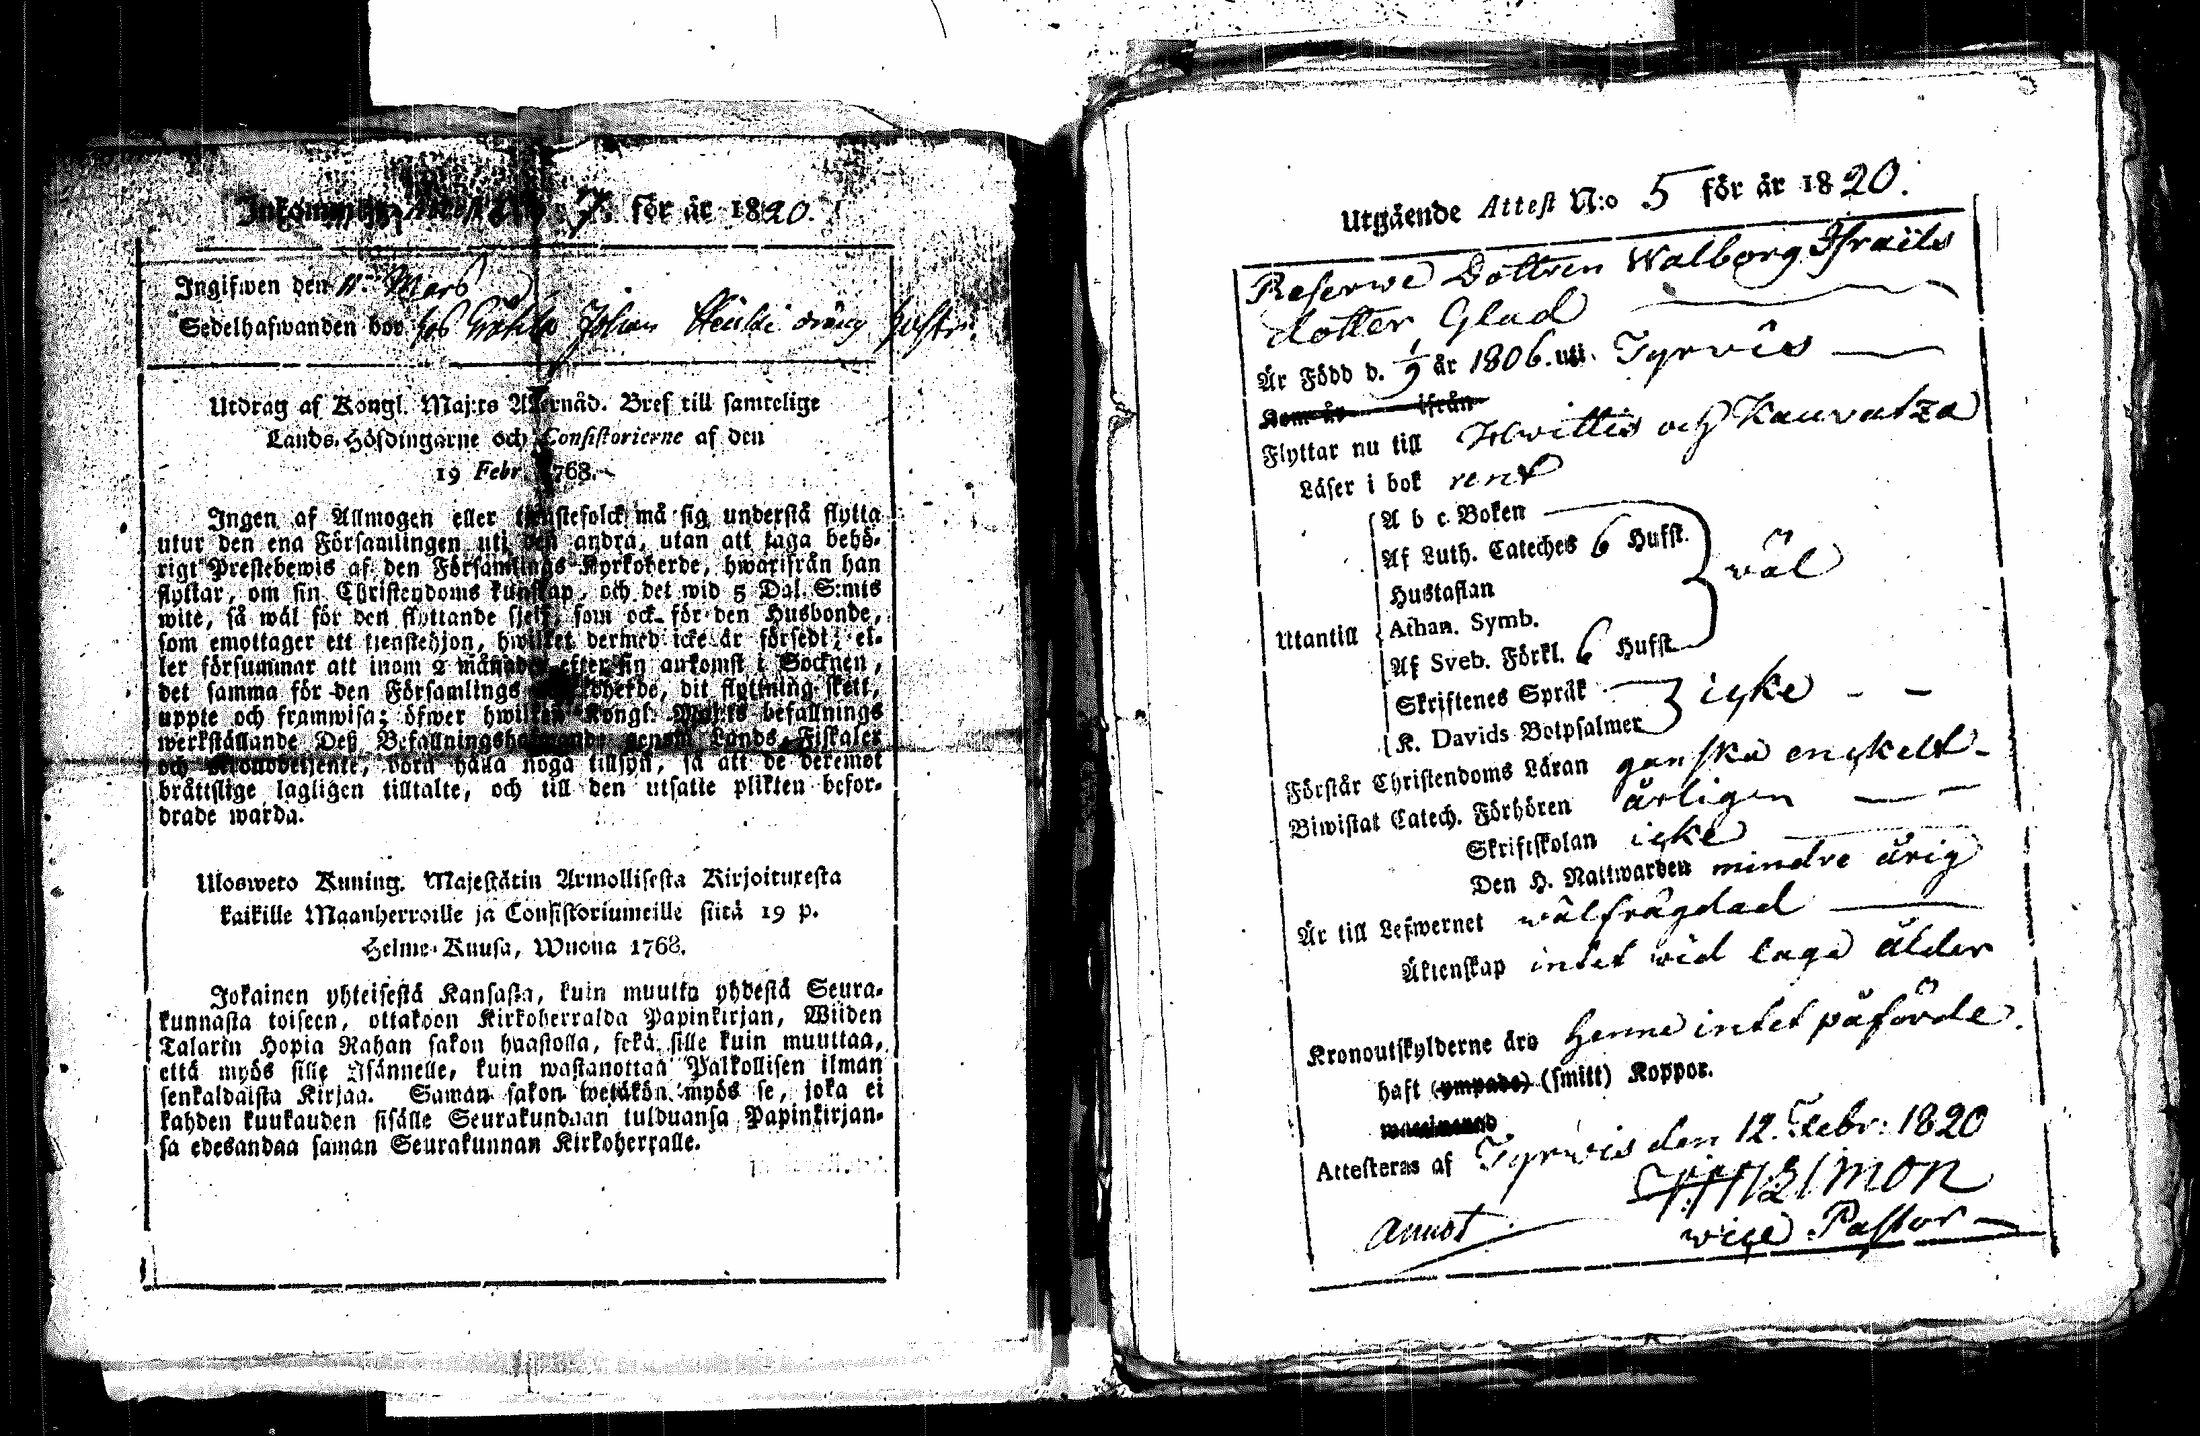 Inkommit Attest N:o 7. för år 1820.
Ingifwen den 11te Mars
Sedelhafwanden bor hos Johan dräng hustru.
Utdrag af Kongl. Maj:ts Allernåd. Bref till samtelige
Lands-Höfdingarne och Consistorierne af den
19 Febr. 1768.
Ingen af Allmogen eller tjenstefolck må sig understå flytta
utur den ena Församlingen uti den andra, utan att taga behö-
rigt Prestebewis af den Församlings Kyrkoherde, hwarifrån han
flyttar, om sin Christendoms kunskap, och det wid 5 Dal. S:mts
wite, så wäl för den flyttande sjelf, som ock för den Husbonde,
som emottager ett tjenstehjon, hwilket dermed icke är försedt; el-
ler försummar att inom 2 månader efter sin ankomst i Socknen,
det samma för den Församlings Kyrkoherde, dit flyttning skett,
uppte och framwisa; öfwer hwilken Kongl. Maj:ts befallnings
werkställande Deß Befallningshafwande genom Lands-Fiskaler
och Kronobetjente, böra hålla noga tillsyn, så att de deremot
bråttslige lagligen tilltalte, och till den utsatte plikten befor-
drade warda.
Uloswето Kuning. Majestätin Armollisesta Kirjoituxesta
kaikille Maanherroille ja Consistoriumeille siitä 19 p.
Helme-Kuusa, Wuona 1768.
Jokainen yhteisestä Kansasta, kuin muutta yhdestä Seura-
kunnasta toiseen, ottakoon Kirkoherralda Papinkirjan, Wiiden
Talarin Hopia Rahan sakon haastolla, sekä sille kuin muuttaa,
että myös sille Isännelle, kuin wastanottaa Palkollisen ilman
senkaldaista Kirjaa. Saman sakon wetäkön myös se, joka ei
kahden kuukauden sisälle Seurakundaan tulduansa Papinkirjan-
sa edesandaa saman Seurakunnan Kirkoherralle.
Utgående Attest N:o 5 för år 1820.
Reserwe Dottren Walborg Israëls
dotter Glad
Är Född d. 1/9 år 1806. uti. Tyrvis
Kom år ifrån
Flyttar nu till Hwittis och Kauvatza
Läser i bok rent
A b c Boken
Af Luth. Cateches 6 Hufst.
Hustaflan
wäl
Utantill Athan. Symb.
Af Sveb. Förkl. 6 Hufst
Skriftenes Språk
icke - -
K. Davids Botpsalmer
Förstår Christendoms Läran ganska enckelt-
Biwistat Catech. Förhören årligen
Skriftskolan icke
Den H. Nattwarden mindre årig
Är till Lefwernet wälfrägdad
Äktenskap intet wid laga ålder
Kronoutskylderne äro henne intet påförde.
haft (ympade) (smitt) Koppor.
Attesteras af Tyrwis den 12. Febr: 1820
Simon
annot.
vice Pastor